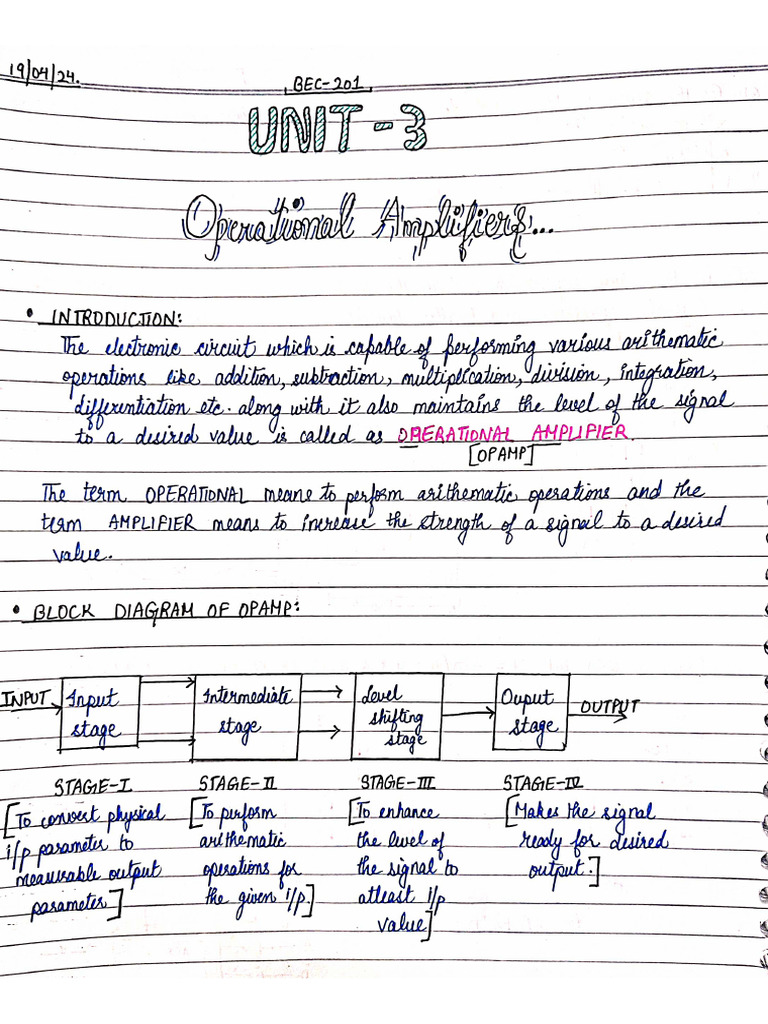 19/04/24.
BEC-201
UNIT-3
Operational Amplifiers...
• INTRODUCTION:
The electronic circuit which is capable of performing various arithematic
operations like addition, subtraction, multiplication, division, integration,
differentiation etc. along with it also maintains the level of the signal
to a desired value is called as OPERATIONAL AMPLIFIER.
[OPAMP]
The term OPERATIONAL means to perform arithematic operations and the
term AMPLIFIER means to increase the strength of a signal to a desired
value.
• BLOCK DIAGRAM OF OPAMP:
INPUT
Input
stage
Intermediate
stage
Level
shifting
stage
Ouput
stage
OUTPUT
STAGE-I
[To convert physical
i/p parameter to
measurable output
parameter]
STAGE-II
[To perform
arithematic
operations for
the given i/p.]
STAGE-III
[To enhance
the level of
the signal to
atleast i/p
value]
STAGE-IV
[Makes the signal
ready for desired
output.]